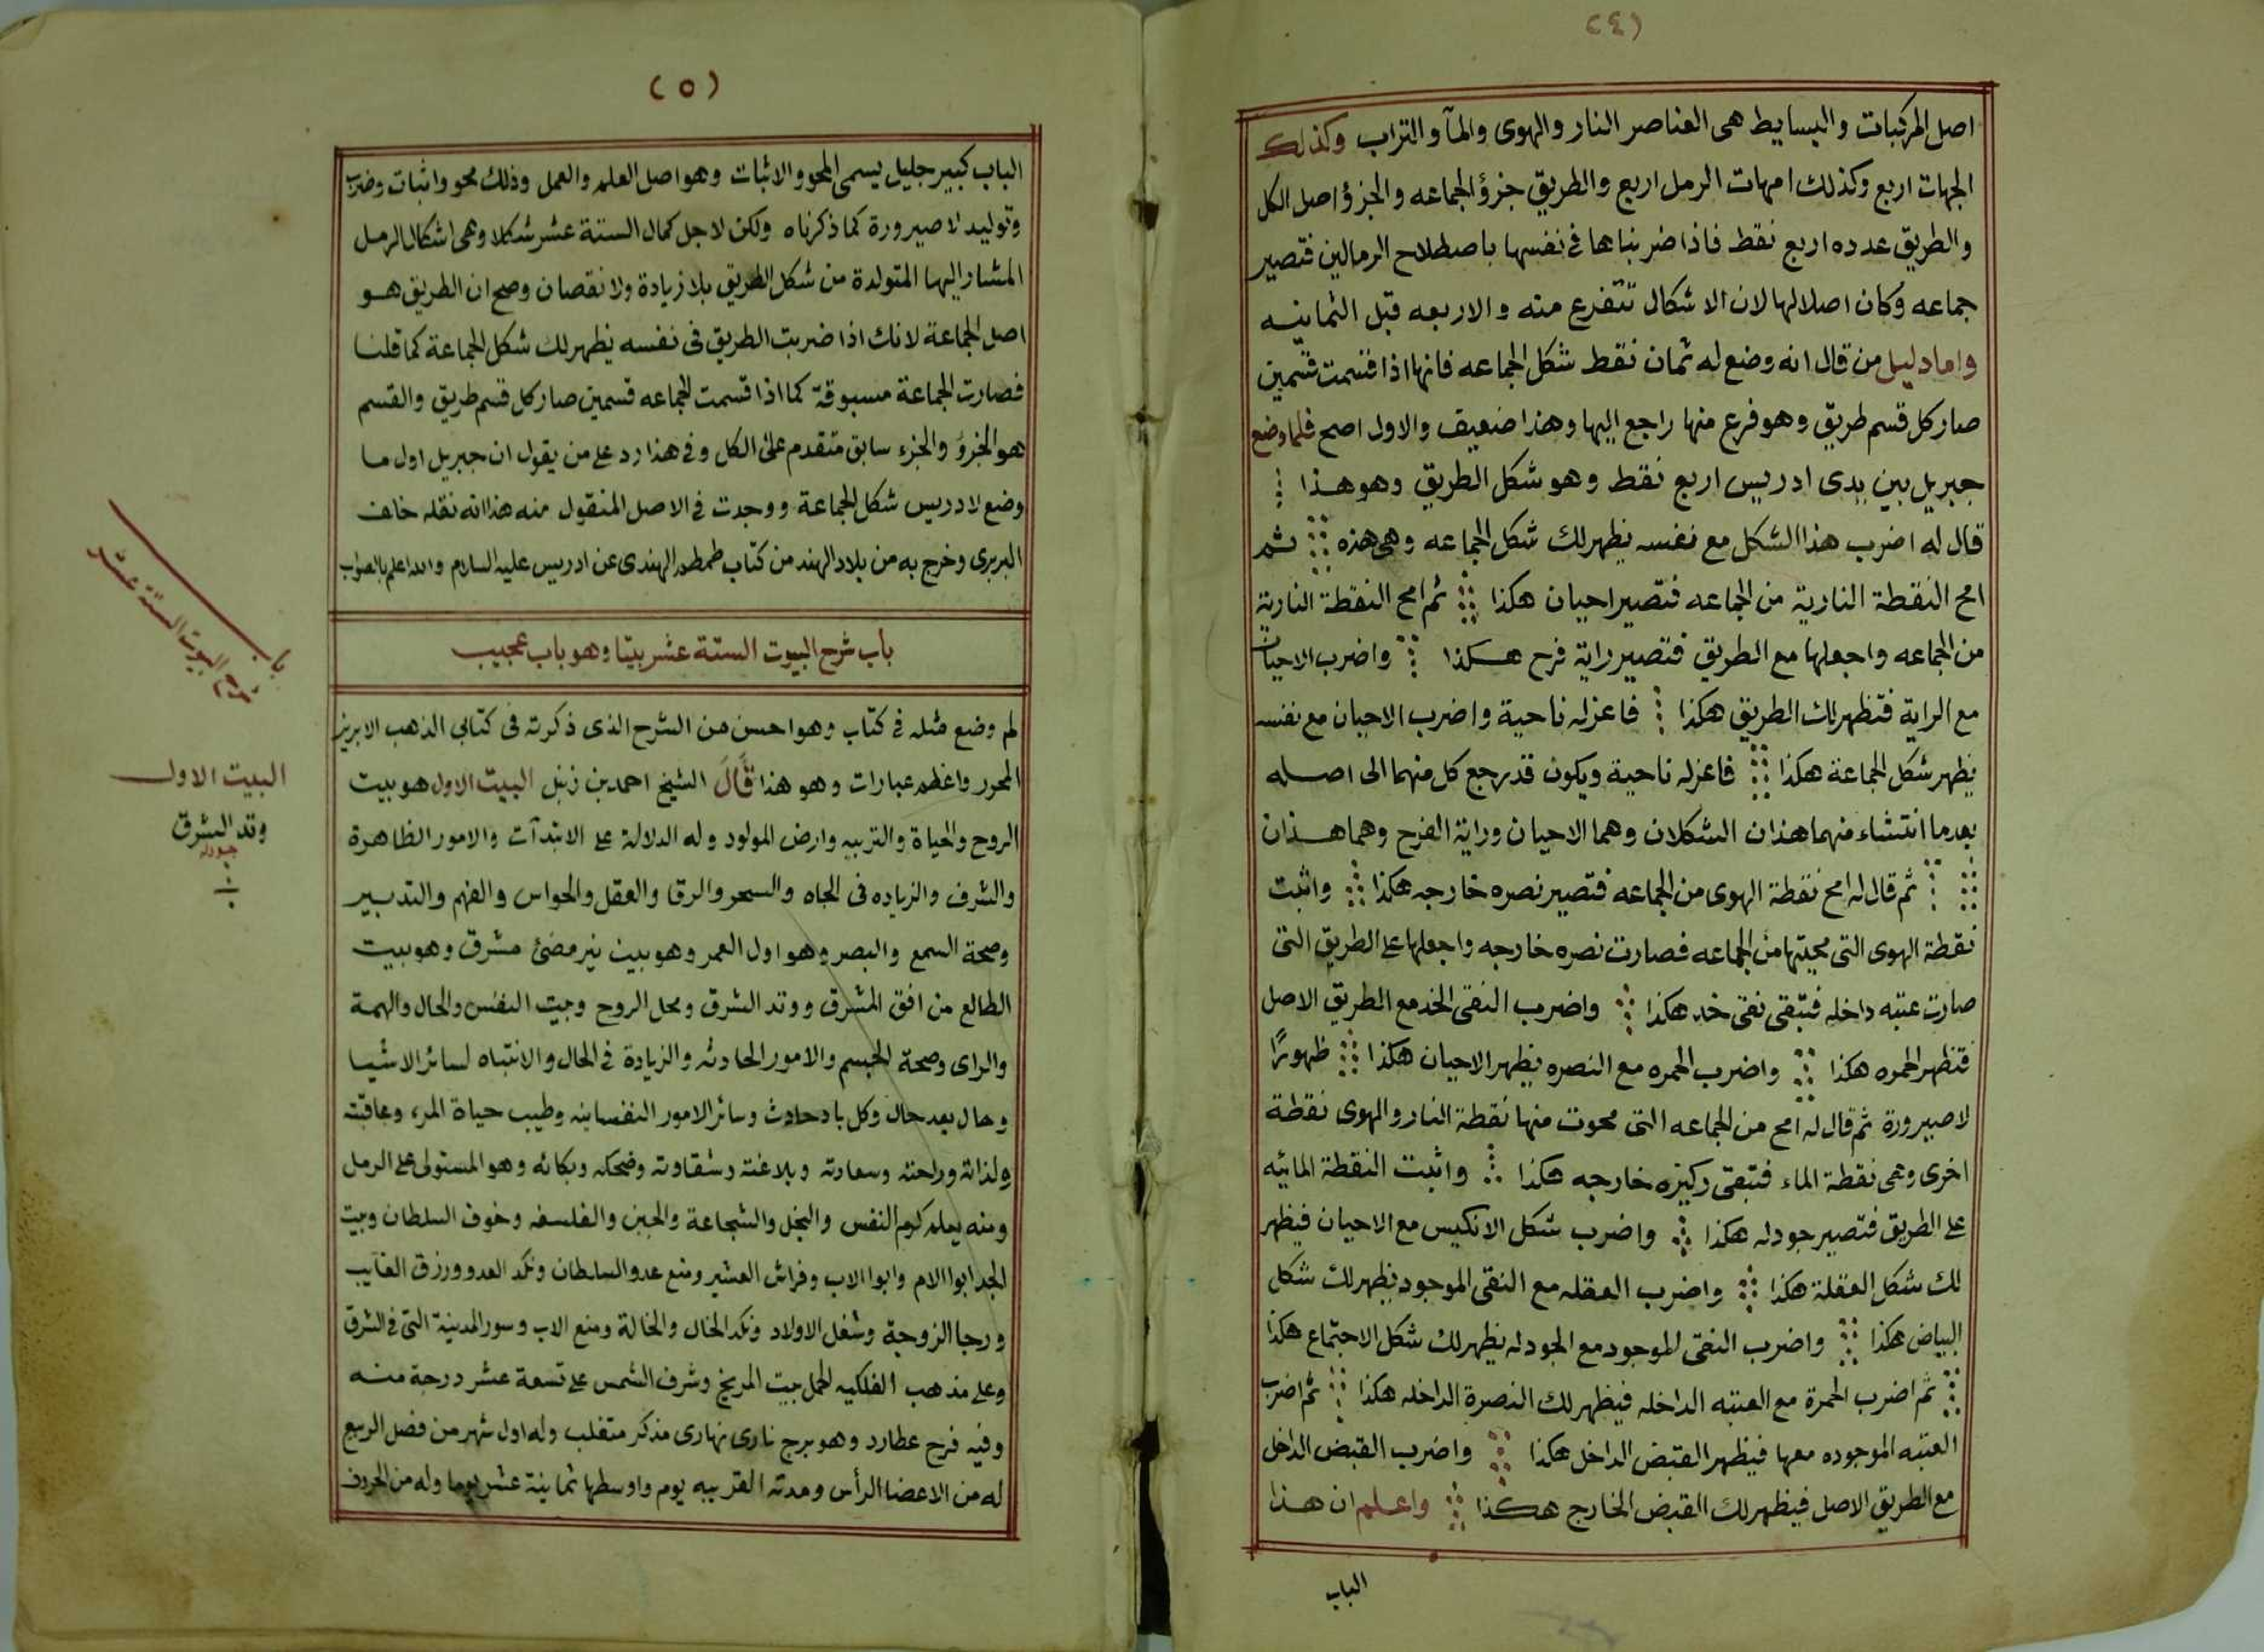 (٤)
اصل المركبات والبسايط هى العناصر النار والهوى والمآ والتراب وكذلك
الجهات اربع وكذلك امهات الرمل اربع والطريق جزؤ الجماعه والجزؤ اصل الكل
والطريق عدده اربع نقط فاذا ضربناها فى نفسها باصطلاح الرمالين فتصير
جماعه وكان اصلا لها لان الاشكال تتفرع منه والاربعه قبل الثمانيه
واما دليل من قال انه وضع له ثمان نقط شكل الجماعه فانها اذا قسمت قسمين
صار كل قسم طريق وهو فرع منها راجع اليها وهذا ضعيف والاول اصح فلما وضع
جبريل بين يدى ادريس اربع نقط وهو شكل الطريق وهو هذا
قال له اضرب هذا الشكل مع نفسه يظهر لك شكل الجماعه وهى هذه ثم
امح النقطة النارية من الجماعه فتصير احيان هكذا ثم امح النقطة النارية
من الجماعه واجعلها مع الطريق فتصير راية فرح هكذا واضرب الاحيان
مع الراية فتظهر لك الطريق هكذا فاعزله ناحية واضرب الاحيان مع نفسه
يظهر شكل الجماعة هكذا فاعزله ناحية ويكون قد رجع كل منهما الى اصله
بعد ما انتشاء منهما هذان الشكلان وهما الاحيان وراية الفرح وهما هذان
ثم قال له امح نقطة الهوى من الجماعه فتصير نصره خارجه هكذا واثبت
نقطة الهوى التى محيتها من الجماعه فصارت نصره خارجه واجعلها على الطريق التى
صارت عتبه داخله فتبقى نقى خد هكذا واضرب النقى الخد مع الطريق الاصل
فتظهر الحمره هكذا واضرب الحمره مع النصره يظهر الاحيان هكذا ظهورًا
لا صيرورة ثم قال له امح من الجماعه التى محوت منها نقطة النار والهوى نقطة
اخرى وهى نقطة الماء فتبقى ركيزه خارجه هكذا واثبت النقطة المائيه
على الطريق فتصير جودله هكذا واضرب شكل الانكيس مع الاحيان فيظهر
لك شكل العقلة هكذا واضرب العقله مع النقى الموجود يظهر لك شكل
البياض هكذا واضرب النقى الموجود مع الجودله يظهر لك شكل الاجتماع هكذا
ثم اضرب الحمرة مع العتبه الداخله فيظهر لك النصرة الداخله هكذا ثم اضرب
العتبه الموجوده معها فيظهر القبض الداخل هكذا واضرب القبض الداخل
مع الطريق الاصل فيظهر لك القبض الخارج هكذا واعلم ان هذا
الباب
(٥)
الباب كبير جليل يسمى المحو والاثبات وهو اصل العلم والعمل وذلك محو واثبات وضرب
وتوليد لا صيرورة كما ذكرناه ولكن لاجل كمال الستة عشر شكلا وهى اشكال الرمل
المشار اليها المتولدة من شكل الطريق بلا زيادة ولا نقصان وصح ان الطريق هو
اصل الجماعة لانك اذا ضربت الطريق فى نفسه يظهر لك شكل الجماعة كما قلنا
فصارت الجماعة مسبوقة كما اذا قسمت الجماعه قسمين صار كل قسم طريق والقسم
هو الجزؤ والجزء سابق متقدم على الكل وفى هذا رد على من يقول ان جبريل اول ما
وضع لادريس شكل الجماعة ووجدت فى الاصل المنقول منه هذا انه نقله خلف
البربرى وخرج به من بلاد الهند من كتاب طمطم الهندى عن ادريس عليه السلام والله اعلم بالصواب
باب شرح البيوت الستة عشر بيتا وهو باب عجيب
لم وضع مثله فى كتاب وهو احسن من الشرح الذى ذكرته فى كتابى الذهب الابريز
المحرر واعظم عبارات وهو هذا قَالَ الشيخ احمد بن زنبل البيت الاول هو بيت
الروح والحياة والتربيه وارض المولود وله الدلالة على الابتدآت والامور الظاهرة
والشرف والزياده فى الجاه والسحر والرقا والعقل والحواس والفهم والتدبير
وصحة السمع والبصر وهو اول العمر وهو بيت نير مضئ مشرق وهو بيت
الطالع من افق المشرق ووتد الشرق ومحل الروح وبيت النفس والحال والهمة
والراى وصحة الجسم والامور الحادثه والزيادة فى الحال والانتباه لسائر الاشيا
وحال بعد حال وكل باد حادث وسائر الامور النفسانيه وطيب حياة المرء وعاقبته
ولذاته وراحته وسعادته وبلاغته وشقاوته وضحكه وبكائه وهو المستولى على الرمل
ومنه يعلم كرم النفس والبخل والشجاعة والجبن والفلسفه وخوف السلطان وبيت
الجد ابوا الام وابوا الاب وفراش العشير ومنع عدو السلطان ونكد العدو ورزق الغايب
ورجا الزوجة وشغل الاولاد ونكد الخال والخالة ومنع الاب وسور المدينة التى فى الشرق
وعلى مذهب الفلكيه الحمل بيت المريخ وشرف الشمس على تسعة عشر درجة منه
وفيه فرح عطارد وهو برج نارى نهارى مذكر متقلب وله اول شهر من فصل الربيع
له من الاعضا الرأس ومدته القريبه يوم واوسطها ثمانية عشر يوما وله من الحروف
باب
البيوت الستة عشر
البيت الاول
وتد الشرق
جودله